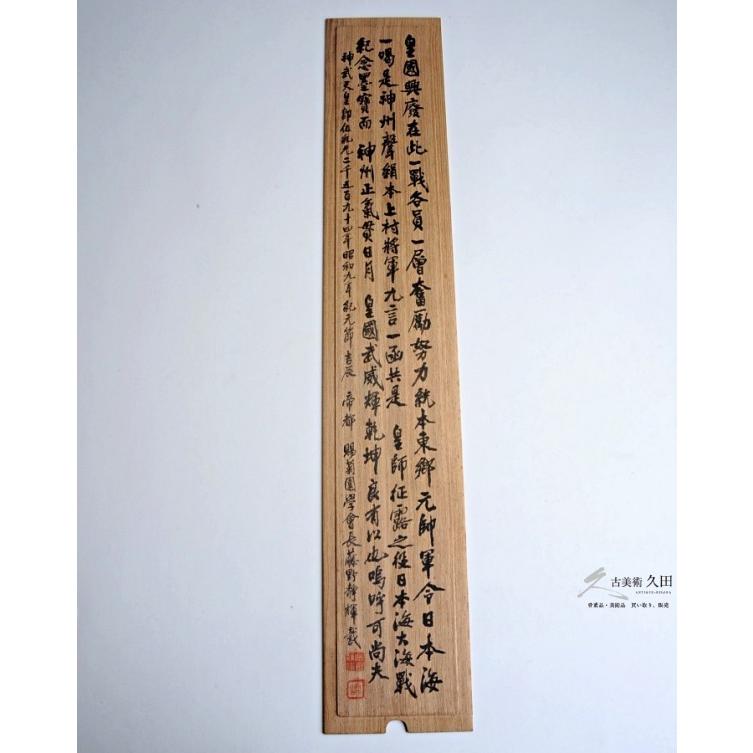 皇國興廢在此一戰各員一層奮勵努力統本東鄉元帥軍令日本海
一喝是神州聲絹本上村將軍九言一函共是 皇師征露之役日本海大海戰
紀念墨寶而 神州正氣貫日月 皇國武威輝乾坤良有以也嗚呼可尚夫
神武天皇即位紀元二千五百九十四年昭和九年紀元節吉辰 帝都 賜菊園學會長藤野靜輝識
古美術 久田
ANTIQUE-HISADA
骨董品・美術品 買い取り、販売